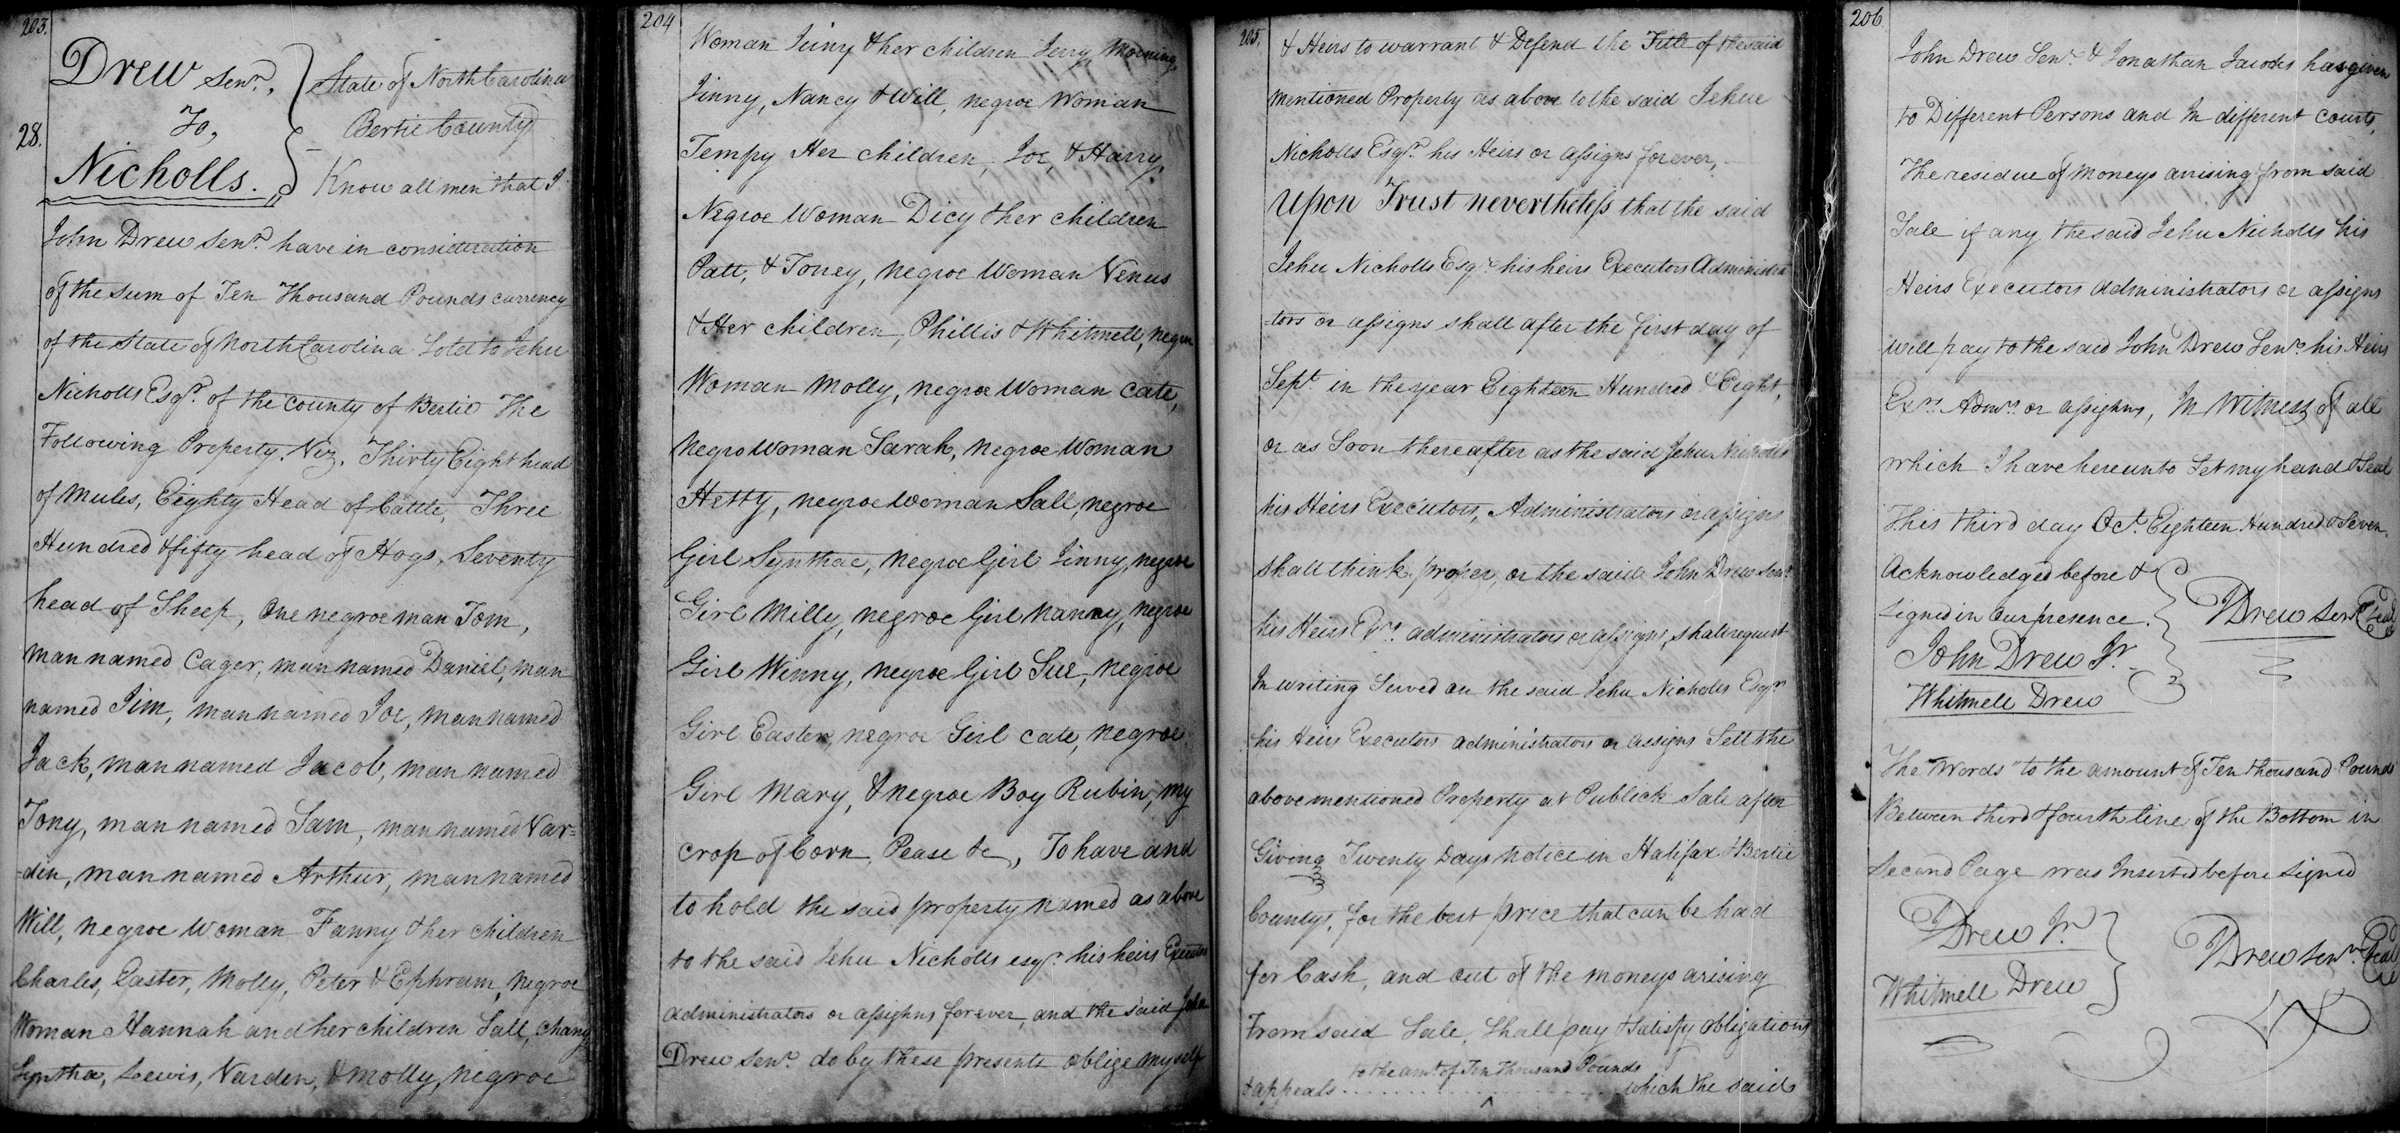 203.
Drew Senr., State of North Carolina
To, Bertie County
28.
Nicholls. Know all men that I
John Drew Senr. have in consideration
of the sum of Ten Thousand Pounds currency
of the State of North Carolina Sold to Jehu
Nicholls Esqr. of the County of Bertie The
Following Property. Viz. Thirty Eight head
of Mules, Eighty Head of Cattle, Three
Hundred & fifty head of Hogs, Seventy
head of Sheep, One negroe man Tom,
man named Cager, man named Daniel, man
named Jim, man named Joe, man named
Jack, man named Jacob, man named
Tony, man named Sam, man named Var=
=den, man named Arthur, man named
Will, negroe Woman Fanny & her children
Charles, Easter, Molly, Peter & Ephram, Negroe
Woman Hannah and her children Sall, Chany
Syntha, Lewis, Varden, & Molly, negroe
204
Woman Jinny & her children Jerry, Morning,
Jinny, Nancy & Will, negroe Woman
Tempy Her children, Joe, & Harry,
Negroe Woman Dicy & her children
Patt, & Toney, negroe Woman Venus
& Her children, Phillis & Whitmell, negroe
Woman Molly, negroe Woman Cate,
negro Woman Sarah, negroe Woman
Hetty, negroe Woman Sall, negroe
Girl Synthae, negroe Girl Jinny, negroe
Girl Milly, negroe Girl Nanny, negroe
Girl Winny, negroe Girl Sue, negroe
Girl Easter, negroe Girl Cate, negroe
Girl Mary, & negroe Boy Rubin, my
crop of Corn, Pease &c, To have and
to hold the said property named as above
to the said Jehu Nicholls esqr. his heirs Executors
administrators or assighns forever, and the said John
Drew Senr. do by these presents oblige myself
205.
& Heirs to warrant & Defend the Title of the said
mentioned Property as above to the said Jehu
Nicholls Esqr. his Heirs or assigns forever,
Upon Trust nevertheless that the said
Jehu Nicholls Esqr. his heirs Executors Administra
=tors or assigns shall after the first day of
Sept. in the year Eighteen Hundred & Eight,
or as Soon thereafter as the said Jehu Nicholls
his Heirs Executors, Administrators or assigns
shall think proper, or the said John Drew Senr.
his Heirs Exrs. administrators or assigns, shall request
In writing Served on the said Jehu Nicholls Esqr.
his Heirs Executors administrators or assigns Sell the
above mentioned Property at Publick Sale after
Giving Twenty Days Notice in Halifax & Bertie
Countys, for the best price that can be had
for Cash, and out of the moneys arising
From said Sale, Shall pay & Satisfy obligations
to the amt of Ten Thousand Pounds
& appeals ^ which the said
206
John Drew Senr. & Jonathan Jacocks has given
to Different Persons and In different Courts,
The residue of moneys arrising from said
Sale if any the said Jehu Nicholls his
Heirs Executors administrators or assigns
will pay to the said John Drew Senr. his Heirs
Exrs. Admrs. or assighns, In Witness of all
which I have hereunto Set my hand & Seal
This third day Oct. Eighteen Hundred & Seven,
Acknowledged before &
signed in Our presence. Drew Senr. Seal
John Drew Jr.
Whitmell Drew
The "Words" to the amount of Ten thousand Pounds
Between third & fourth line of the Bottom in
Second Page was Inserted before Signed
Drew Jr. Drew Senr. Seal
Whitmell Drew